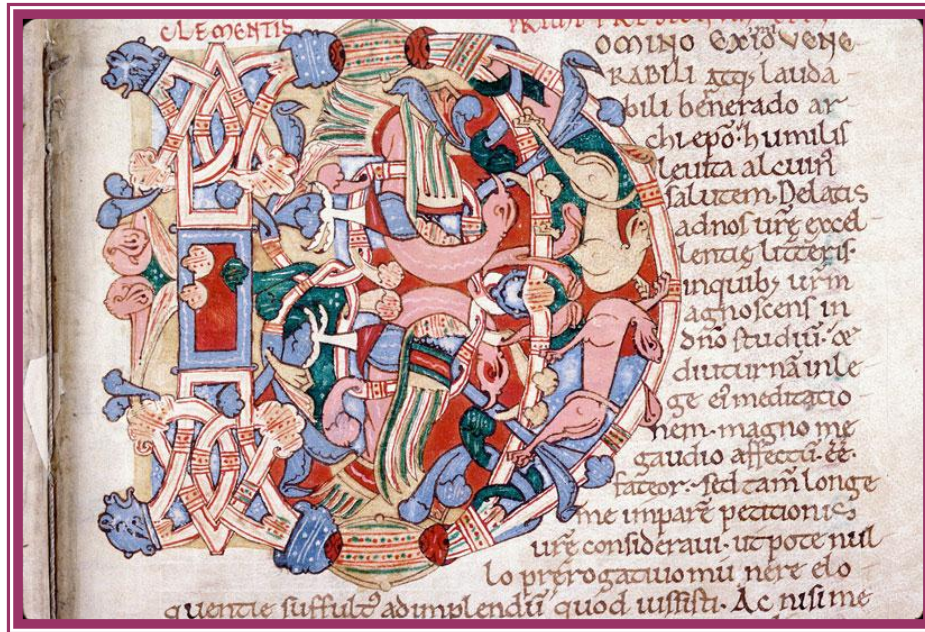 CLEMENTIS
OMINO VENE
RABILI atq; lauda-
bili benerado ar
chiepo. humilis
leuita alcuin'
salutem. Delatis
ad nos urę excel-
lentię litteris.
inquib; urm̄
agnoscens in
dnō studiū. &
diuturnā in le
ge ei' meditatio
nem. magno me
gaudio affectū. ēē.
fateor. sed tam longe
me imparē petitionis
urę consideraui. ut pote nul
lo prerogatiuo munere elo
quentie suffult' adimplendū quod iussisti. Ac nisi me